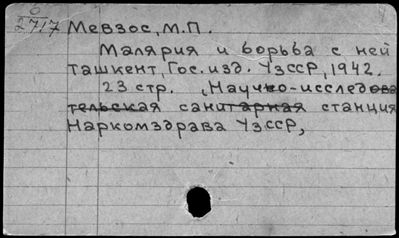 0
2717
Мевзос, М.П.
Малярия и борьба с ней
Ташкент, Гос. изд. УзССР, 1942.
23 стр. , Научно-исследова
тельская санитарная станция
Наркомздрава УзССР,